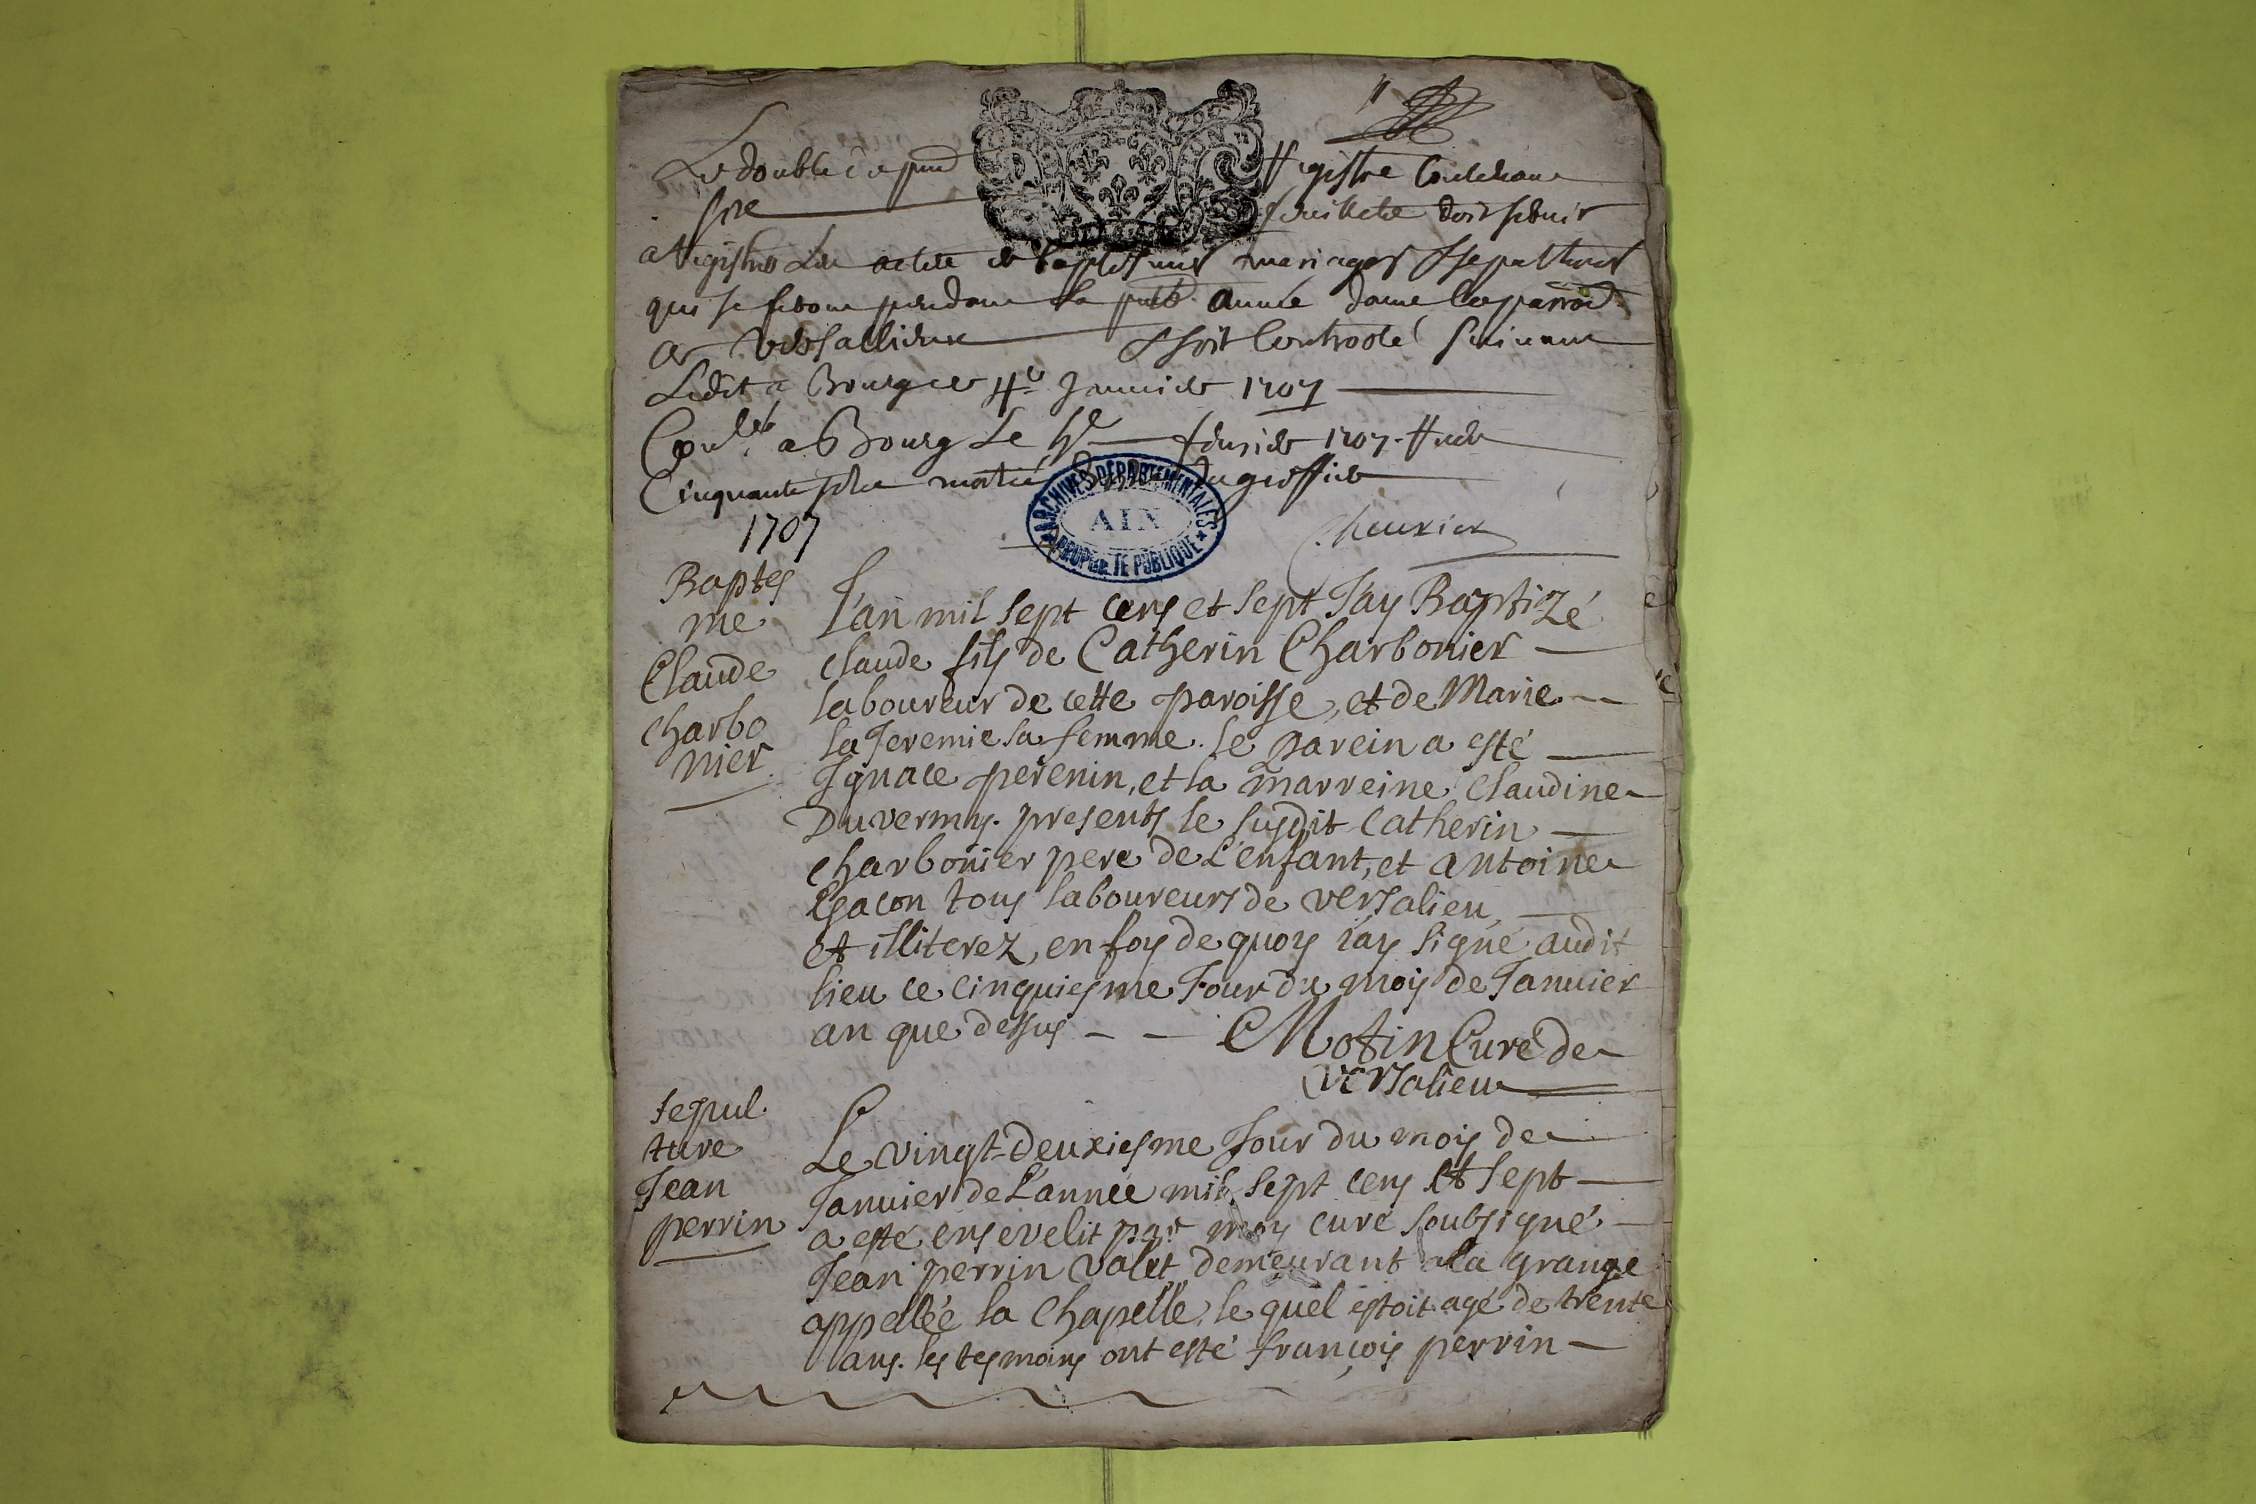 Le double du pnt Registre contenant
six feuillets doit servir
a Registrer Les actes de baptesmes mariages & sepultures
qui se feront pendant la pnte année dans la parroisse
de Versallieux & soit Controolé suivant
Ledit a Bourg ce 4e Janvier 1707
Conlé a Bourg Le fevrier 1707. Recu
Cinquante sols moitié du greffier
Cheurier
ARCHIVES DÉPARTEMENTALES
AIN
PROPRIÉTÉ PUBLIQUE
1707
Baptes
me
Claude
charbo
nier
L'an mil sept cens et sept J'ay Baptizé
claude fils de Catherin Charbonier
laboureur de cette paroisse, et de Marie
la Jeremie sa femme. le parein a esté
Ignace perenin, et la marreine Claudine
Duvernay. presents le susdit Catherin
charbonier pere de L'enfant, et antoine
Egacon tous laboureurs de versalieu,
et illiterez, en foy de quoy i'ay signé audit
lieu ce cinquiesme Jour du mois de Janvier
an que dessus Motin Curé de
versalieu
Sepul
ture
Jean
perrin
Le vingt-deuxiesme Jour du mois de
Janvier de L'année mil sept cens et sept
a esté ensevelit par moy curé soubsigné
Jean perrin valet demeurant a la grange
appellée la Chapelle, le quel estoit agé de trente
ans. les tesmoins ont esté françois perrin